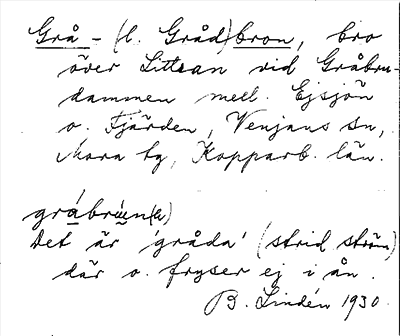 Grå - (l. Gråd)bron, bro
över Littean vid Gråbro-
dammen mell. Ejsjön
o. Fjärden, Venjans sn,
Mora tg, Kopparb. län.
Det är 'gråda' (strid ström)
där o. fryser ej i ån.
B. Lindén 1930.